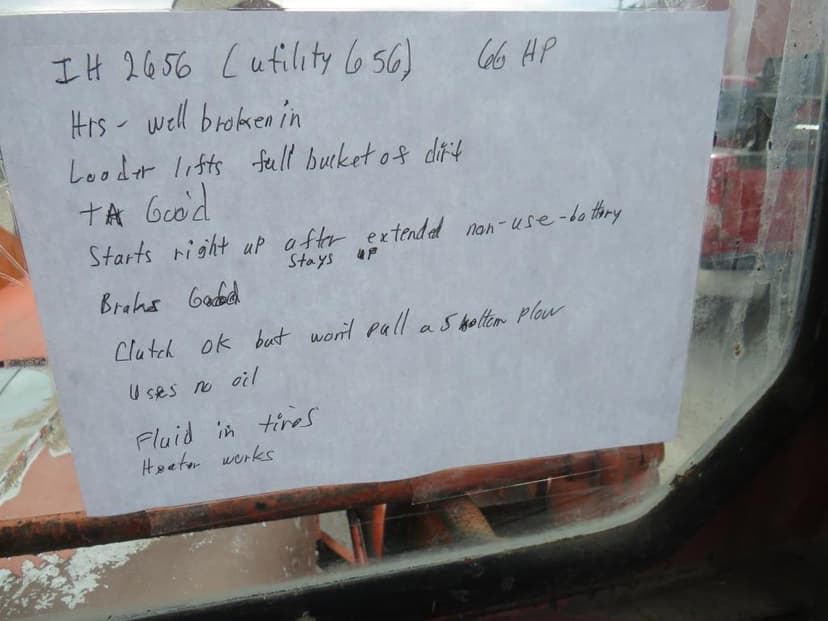 IH 2656 (utility 656) 66 HP
Hrs - well broken in
Loader lifts full bucket of dirt
TA Good
Starts right up after extended non-use - battery
stays up
Brakes Good
Clutch OK but won't pull a 5 bottom plow
Uses no oil
Fluid in tires
Heater works